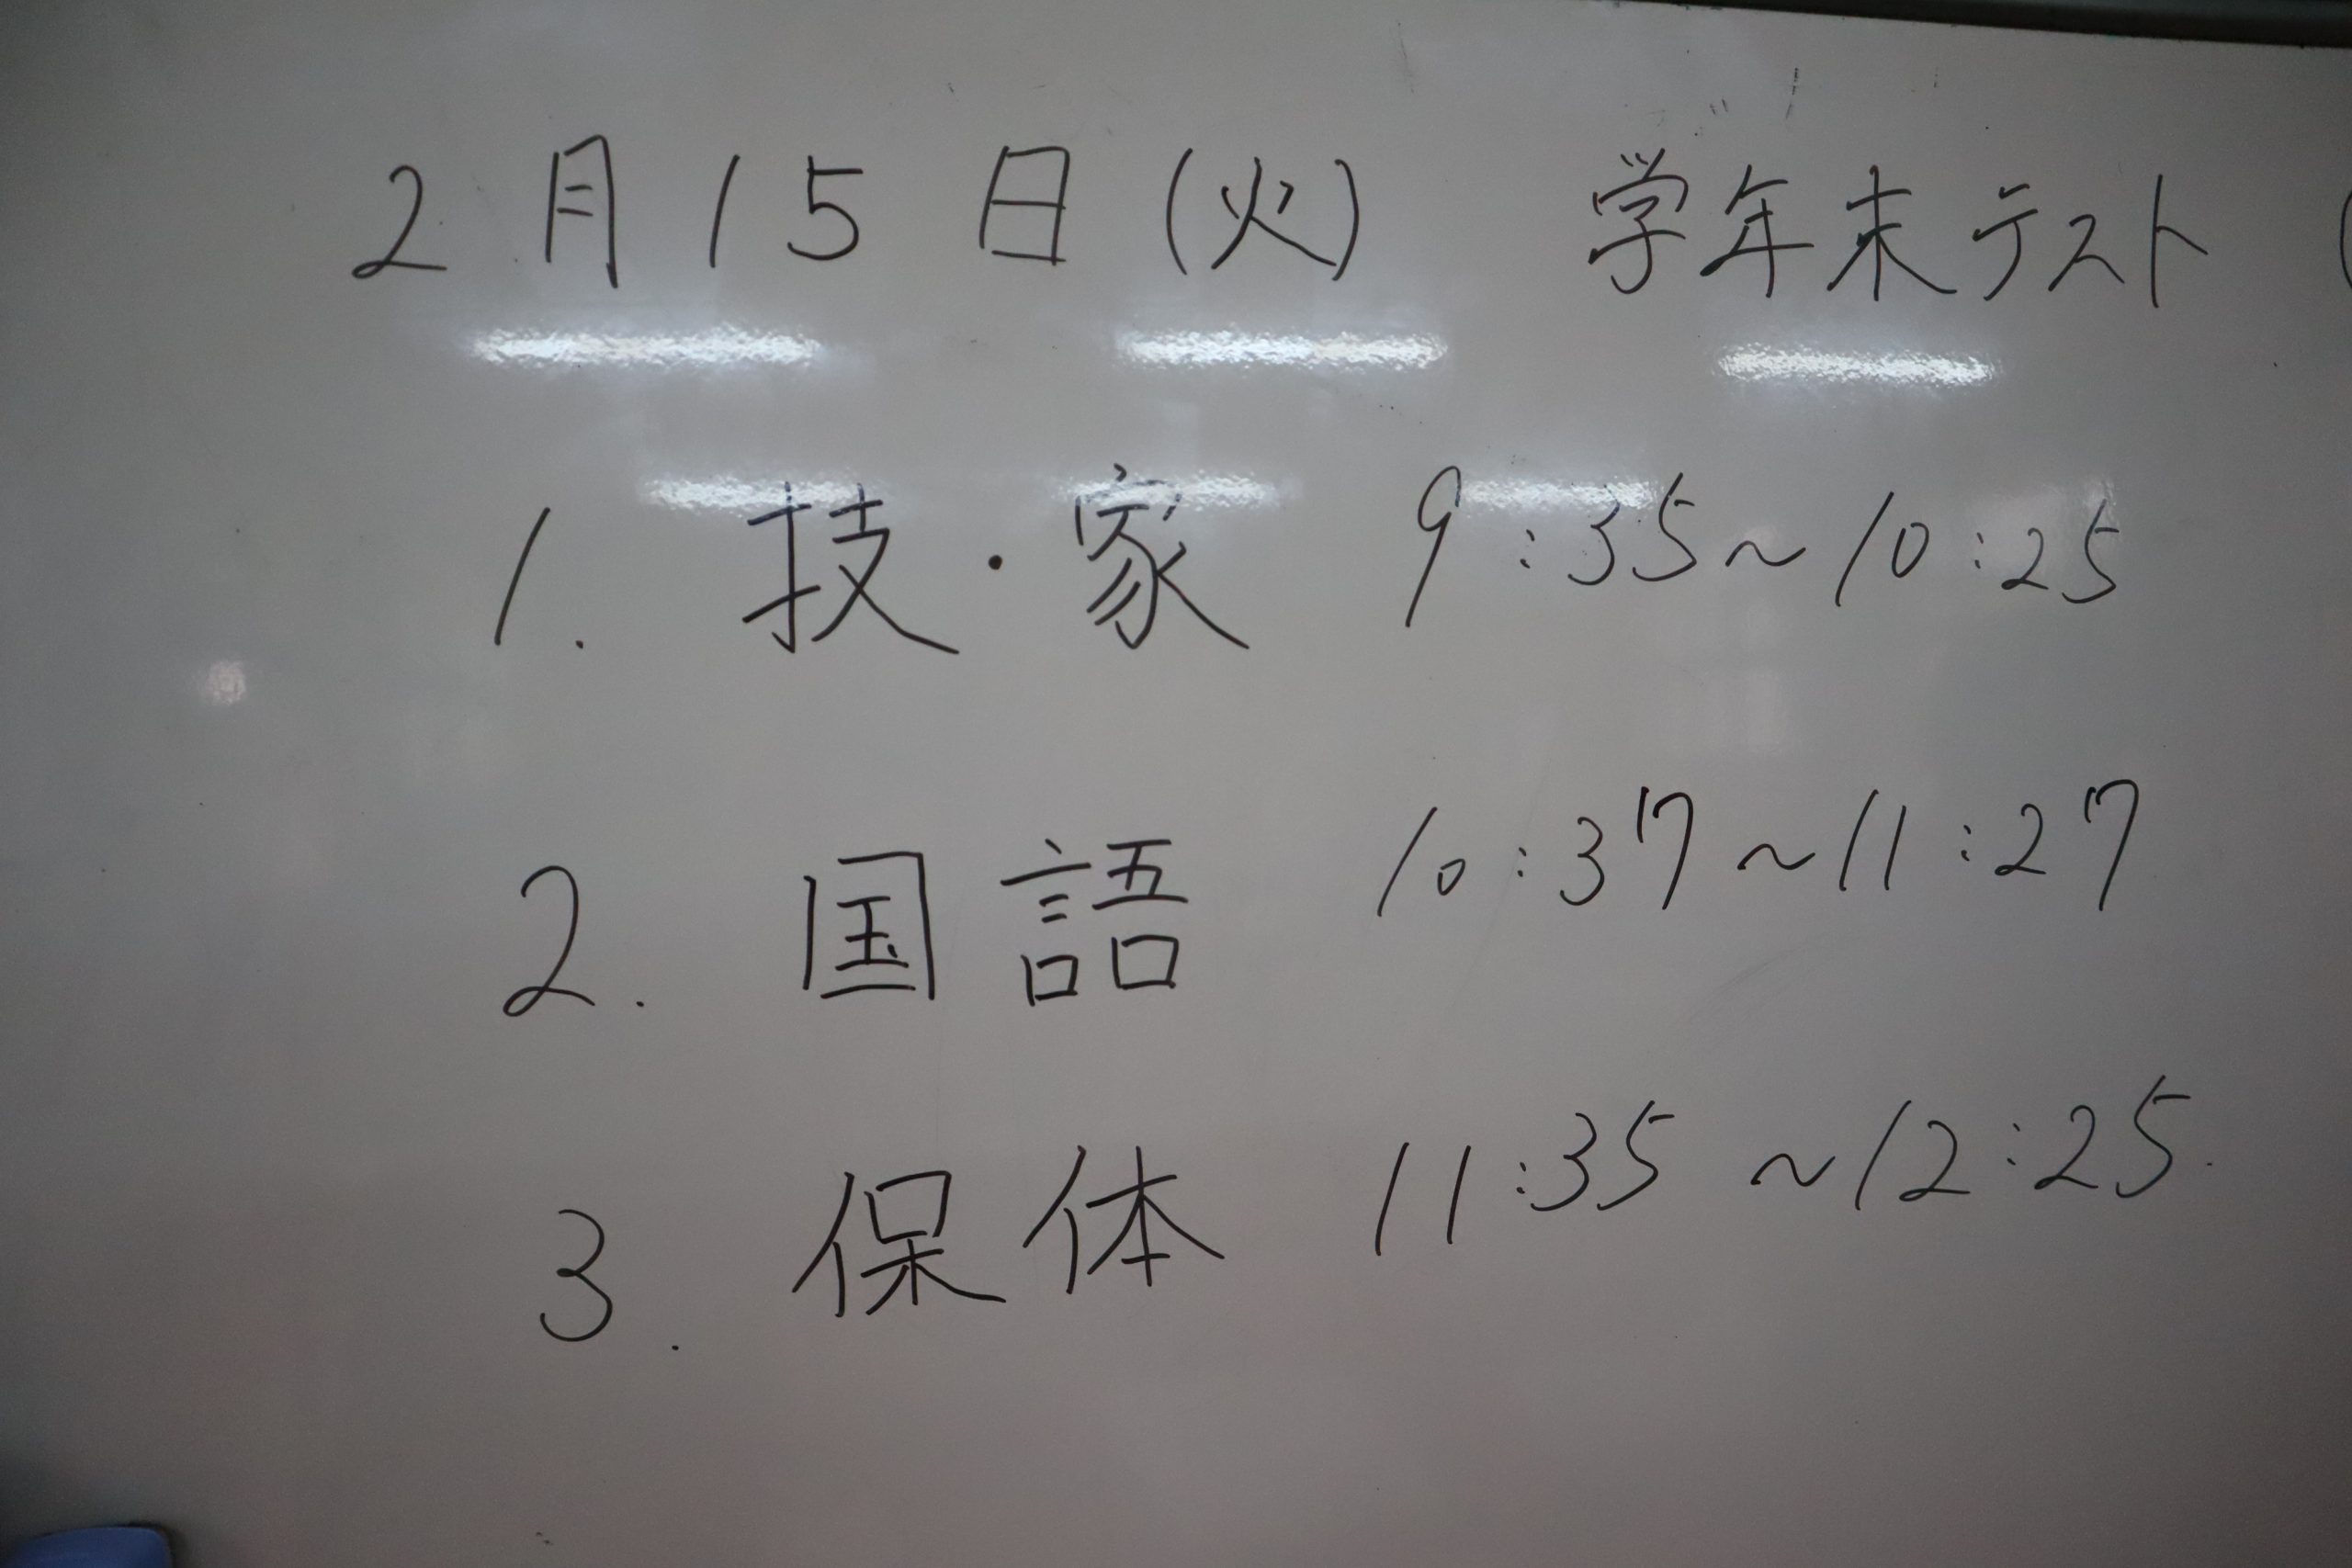 2月15日(火) 学年末テスト(
1. 技・家 9:35~10:25
2. 国語 10:37~11:27
3. 保体 11:35~12:25